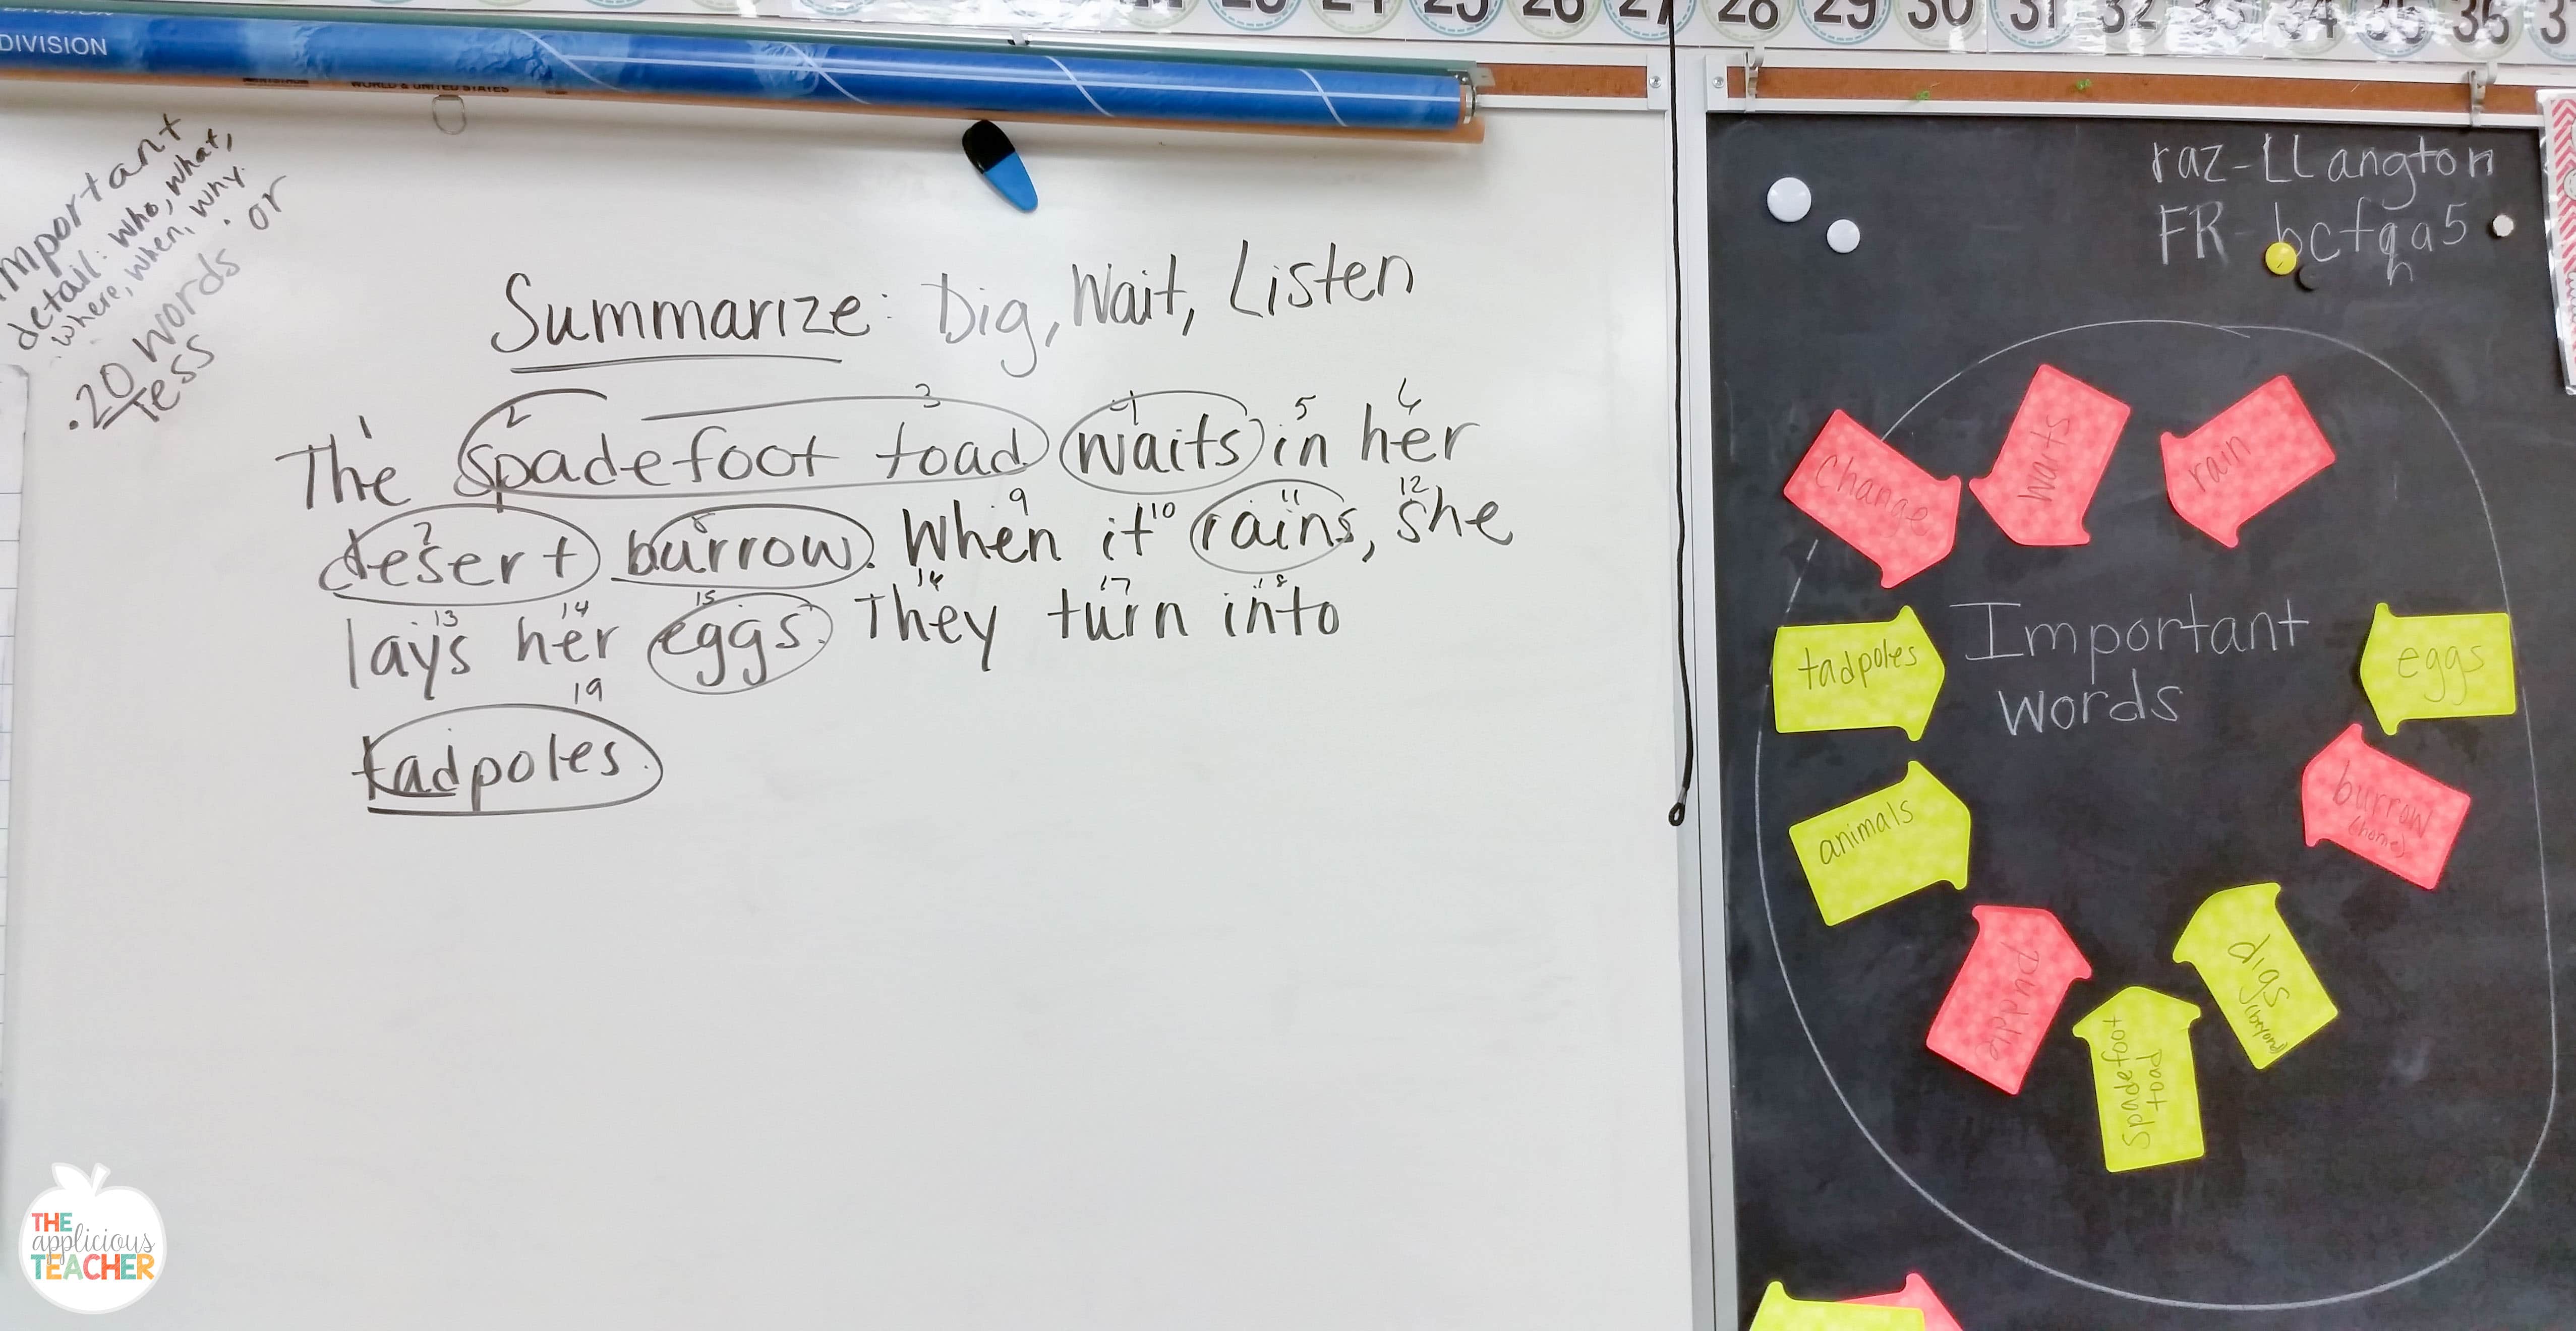 DIVISION
WORLD & UNITED STATES
27 28 29 30 31 32 33 34 35 36
important
detail: who, what,
where, when, why.
. 20 words or
less
Summarize: Dig, Wait, Listen
1 2 3 4 5 6
The spadefoot toad waits in her
7 8 9 10 11 12
desert burrow. When it rains, she
13 14 15 16 17 18
lays her eggs. They turn into
19
tadpoles.
raz-LLangton
FR-
Important
words
change
waits
rain
tadpoles
eggs
animals
burrow
(home)
puddle
digs
spadefoot
toad
THE
applicious
TEACHER